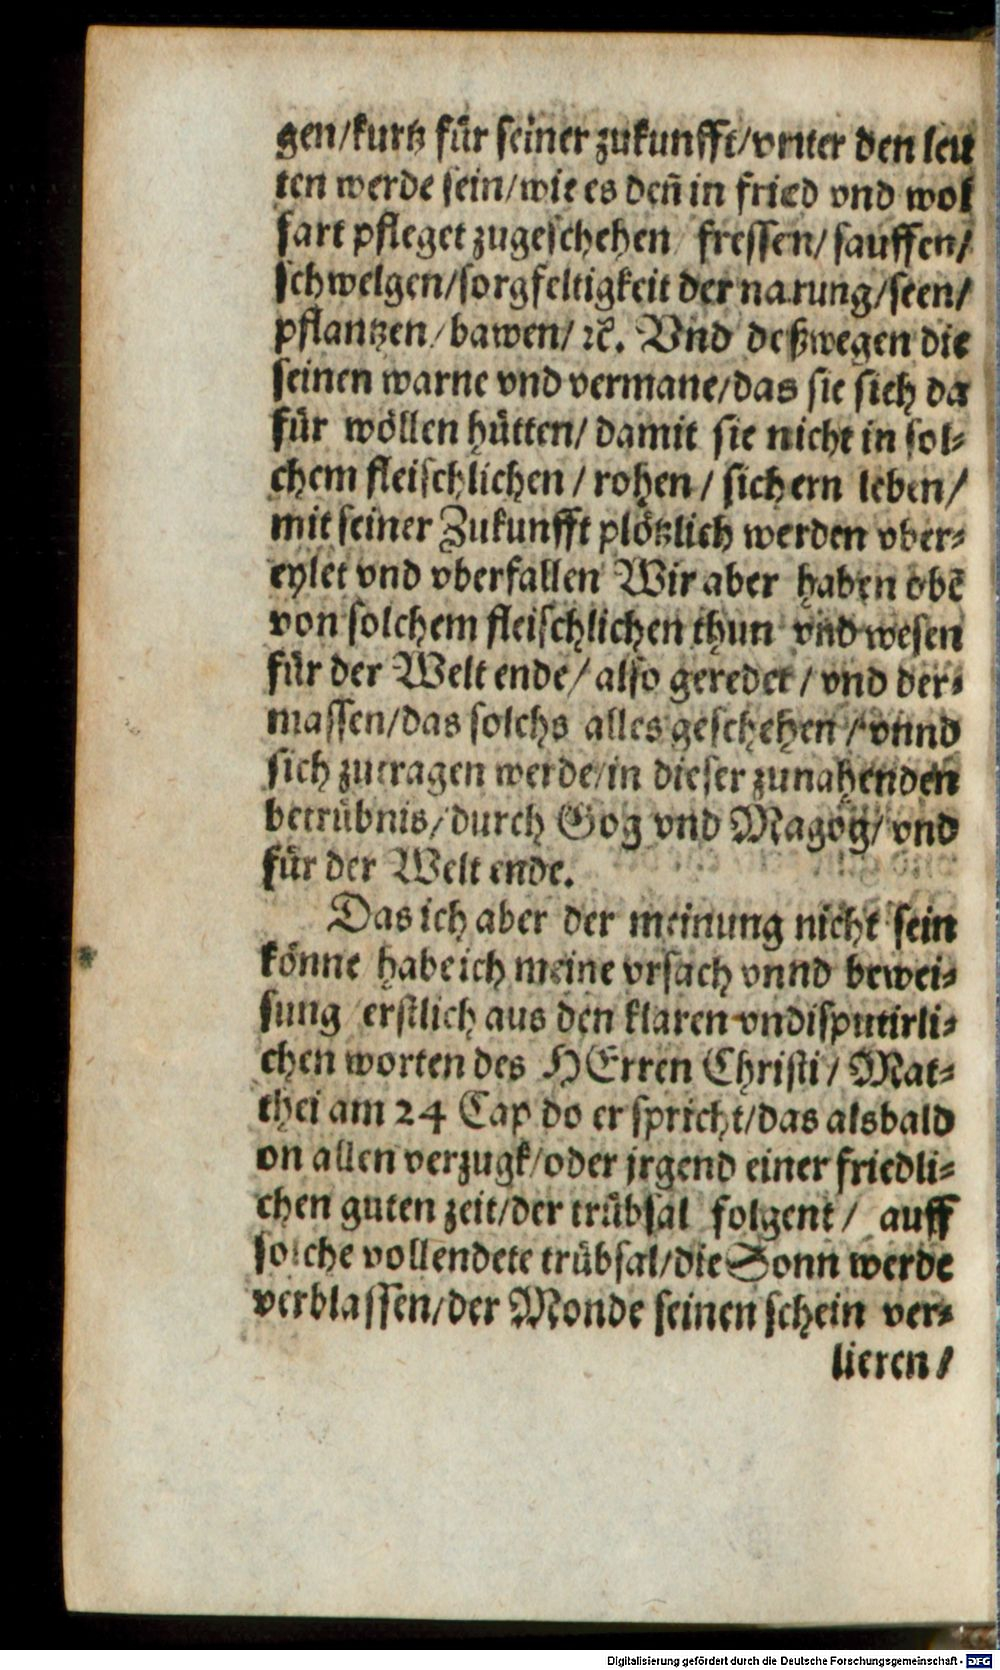 gen/kurtz für seiner zukunfft/vnter den leu
ten werde sein/wie es deñ in fried vnd wol
fart pfleget zugeschehen fressen/sauffen/
schwelgen/sorgfeltigkeit der narung/seen/
pflantzen/bawen/ꝛc. Vnd deßwegen die
seinen warne vnd vermane/das sie sich da
für wöllen hütten/damit sie nicht in sol-
chem fleischlichen/rohen/sichern leben/
mit seiner Zukunfft plötzlich werden vber-
eylet vnd vberfallen Wir aber haben obē
von solchem fleischlichen thun vnd wesen
für der Welt ende/also geredet/vnd der-
massen/das solchs alles geschehen/vnnd
sich zutragen werde/in dieser zunahenden
betrübnis/durch Gog vnd Magog/vnd
für der Welt ende.
Das ich aber der meinung nicht sein
könne habe ich meine vrsach vnnd bewei-
sung erstlich aus den klaren vndisputirli-
chen worten des HErren Christi/Mat-
thei am 24 Cap do er spricht/das alsbald
on allen verzugk/oder jrgend einer friedli-
chen guten zeit/der trübsal folgent/auff
solche vollendete trübsal/die Sonn werde
verblassen/der Monde seinen schein ver-
lieren/
Digitalisierung gefördert durch die Deutsche Forschungsgemeinschaft - DFG